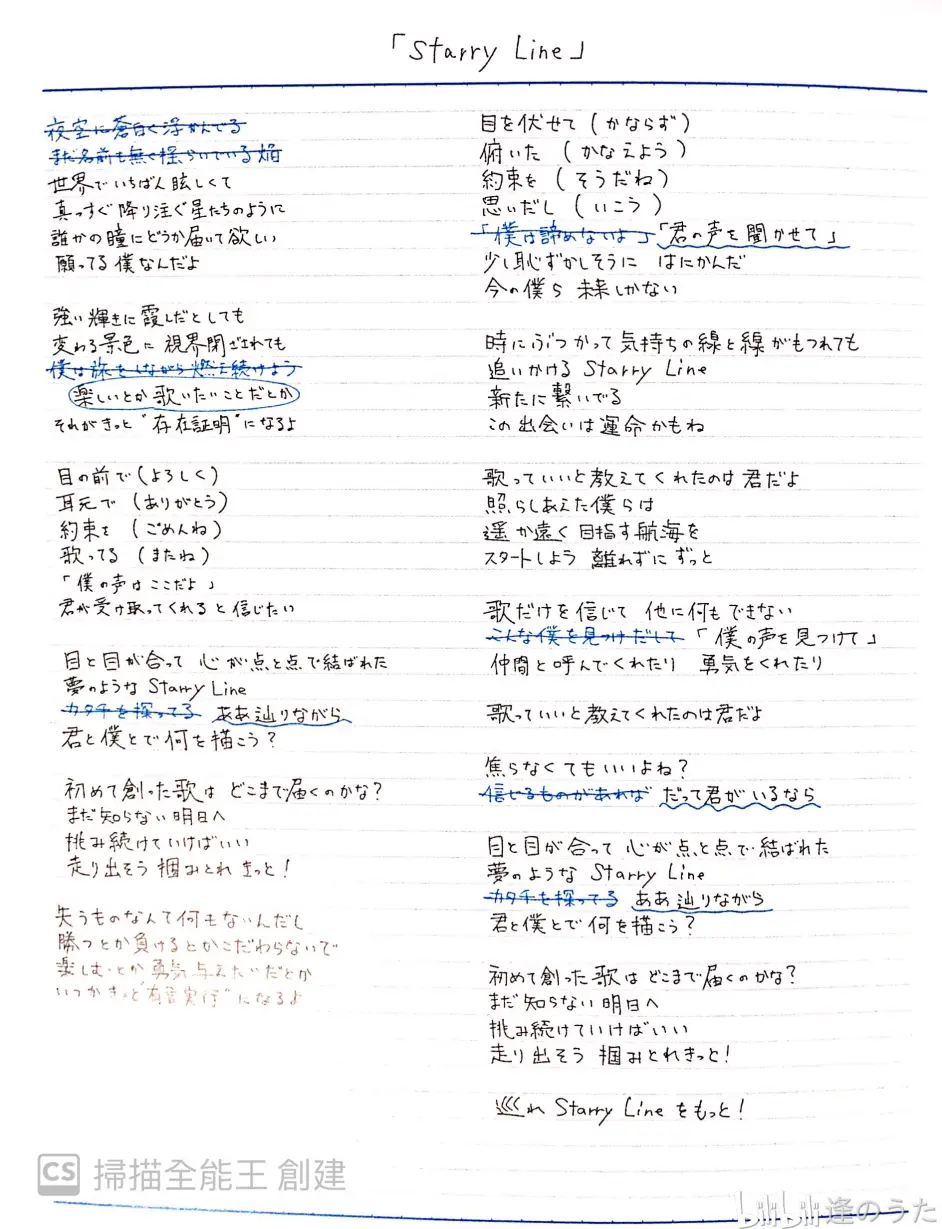 「Starry Line」
夜空に蒼白く浮かんでる
まだ名前も無く揺らいでいる焔
世界でいちばん眩しくて
真っすぐ降り注ぐ星たちのように
誰かの瞳にどうか届いて欲しい
願ってる僕なんだよ
強い輝きに霞んだとしても
変わる景色に視界閉ざされても
僕は旅をしながら燃え続けよう
楽しいとか歌いたいことだとか
それがきっと"存在証明"になるよ
目の前で(よろしく)
耳元で(ありがとう)
約束を(ごめんね)
歌ってる(またね)
「僕の声はここだよ」
君が受け取ってくれると信じたい
目と目が合って 心が点と点で結ばれた
夢のような Starry Line
カタチを探ってる ああ辿りながら
君と僕とで何を描こう?
初めて創った歌は どこまで届くのかな?
まだ知らない明日へ
挑み続けていけばいい
走り出そう 掴みとれ きっと!
失うものなんて何もないんだし
勝つとか負けるとかこだわらないで
楽しむとか勇気与えたいだとか
いつかきっと"有言実行"になるよ
目を伏せて(かならず)
俯いた(かなえよう)
約束を(そうだね)
思いだし(いこう)
「僕は諦めないよ」「君の声を聞かせて」
少し恥ずかしそうに はにかんだ
今の僕ら 未来しかない
時にぶつかって気持ちの線と線がもつれても
追いかける Starry Line
新たに繋いでる
この出会いは運命かもね
歌っていいと教えてくれたのは君だよ
照らしあえた僕らは
遥か遠く目指す航海を
スタートしよう 離れずにずっと
歌だけを信じて 他に何もできない
こんな僕を見つけだして 「僕の声を見つけて」
仲間と呼んでくれたり 勇気をくれたり
歌っていいと教えてくれたのは君だよ
焦らなくてもいいよね?
信じるものがあれば だって君がいるなら
目と目が合って 心が点と点で結ばれた
夢のような Starry Line
カタチを探ってる ああ辿りながら
君と僕とで何を描こう?
初めて創った歌は どこまで届くのかな?
まだ知らない明日へ
挑み続けていけばいい
走り出そう 掴みとれきっと!
巡れ Starry Line をもっと!
CS 掃描全能王 創建
bilibili 逢のうた